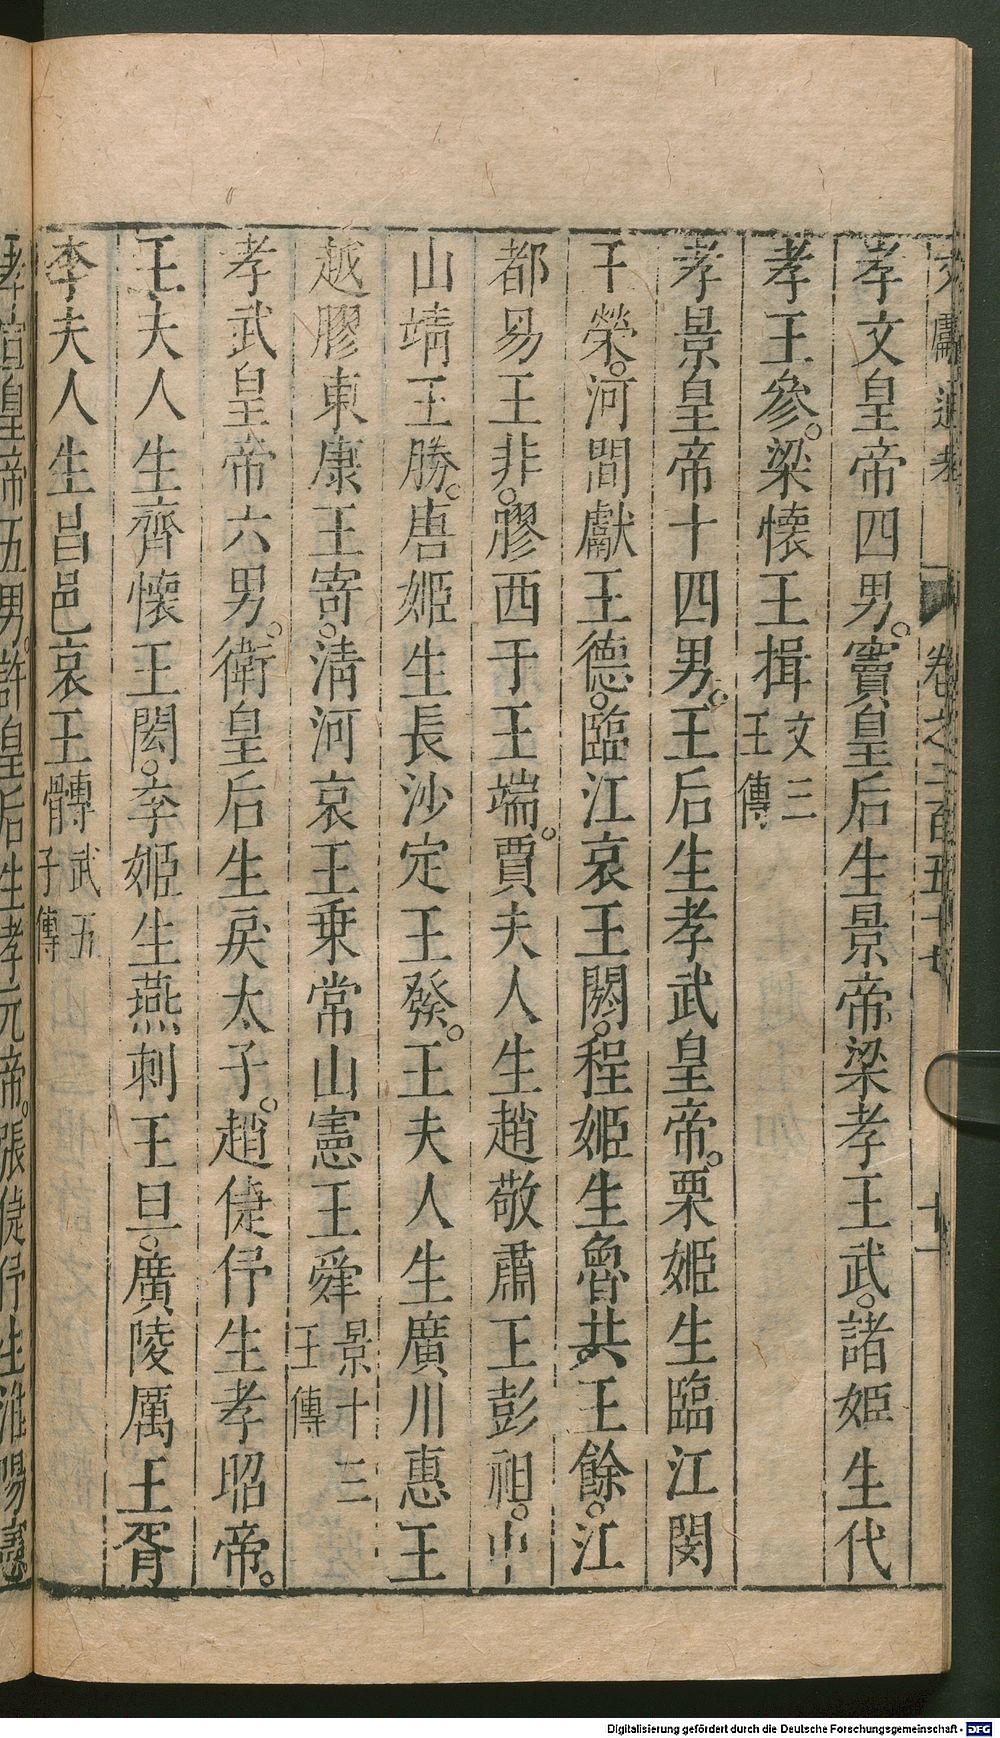 文獻通考 卷之二百五十七 十一
孝文皇帝四男。竇皇后生景帝梁孝王武。諸姬生代
孝王參。梁懷王揖文三王傳
孝景皇帝十四男。王后生孝武皇帝。栗姬生臨江閔
王榮。河間獻王德。臨江哀王閼。程姬生魯共王餘。江
都易王非。膠西于王端。賈夫人生趙敬肅王彭祖。中
山靖王勝。唐姬生長沙定王發。王夫人生廣川惠王
越膠東康王寄。清河哀王乗常山憲王舜景十三王傳
孝武皇帝六男。衛皇后生戾太子。趙倢伃生孝昭帝。
王夫人生齊懷王閎。李姬生燕刺王旦。廣陵厲王胥
李夫人生昌邑哀王髆武五子傳
孝宣皇帝五男。許皇后生孝元帝。張倢伃生淮陽憲
Digitalisierung gefördert durch die Deutsche Forschungsgemeinschaft - DFG